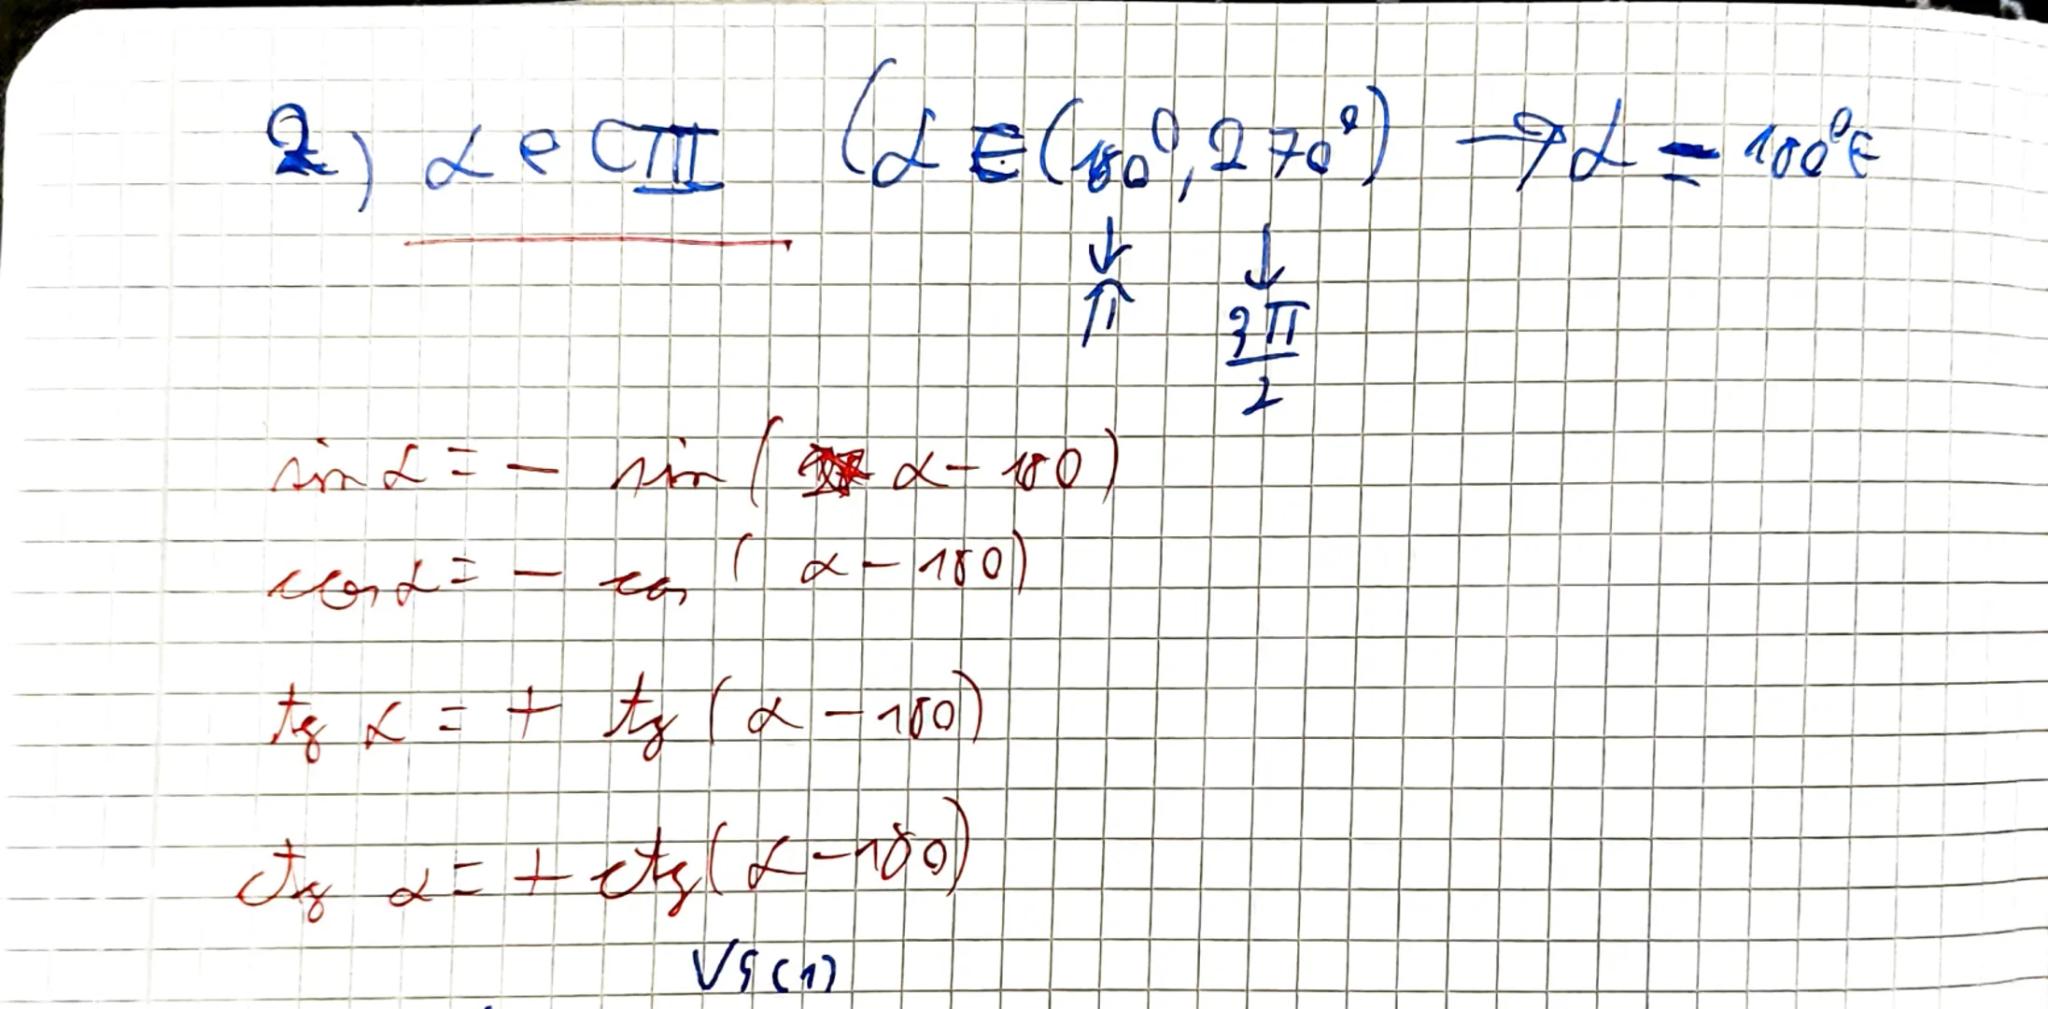 2) α e CIII (α ∈ (180°, 270°) → α = 180°
↓ ↓
π 3π/2
sin α = - sin ( α - 180)
cos α = - cos ( α - 180)
tg α = + tg (α - 180)
ctg α = + ctg (α - 180)